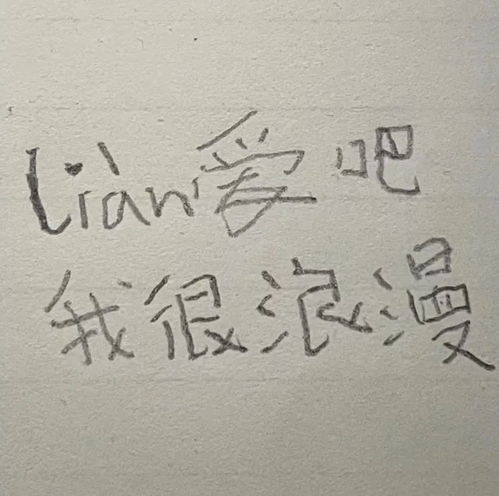 liàn爱吧
我很浪漫